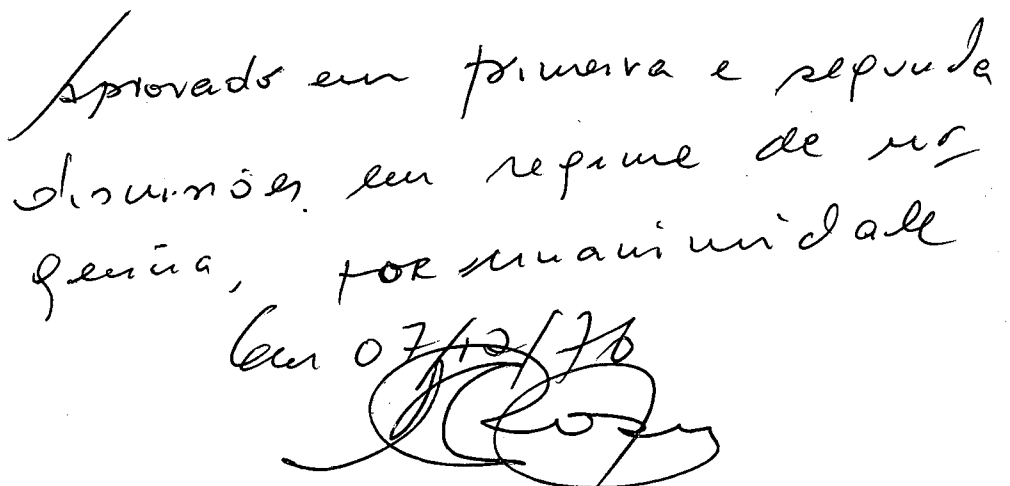 Aprovado em primeira e segunda
discussões em regime de ur
gência, por unanimidade
Em 07/12/76